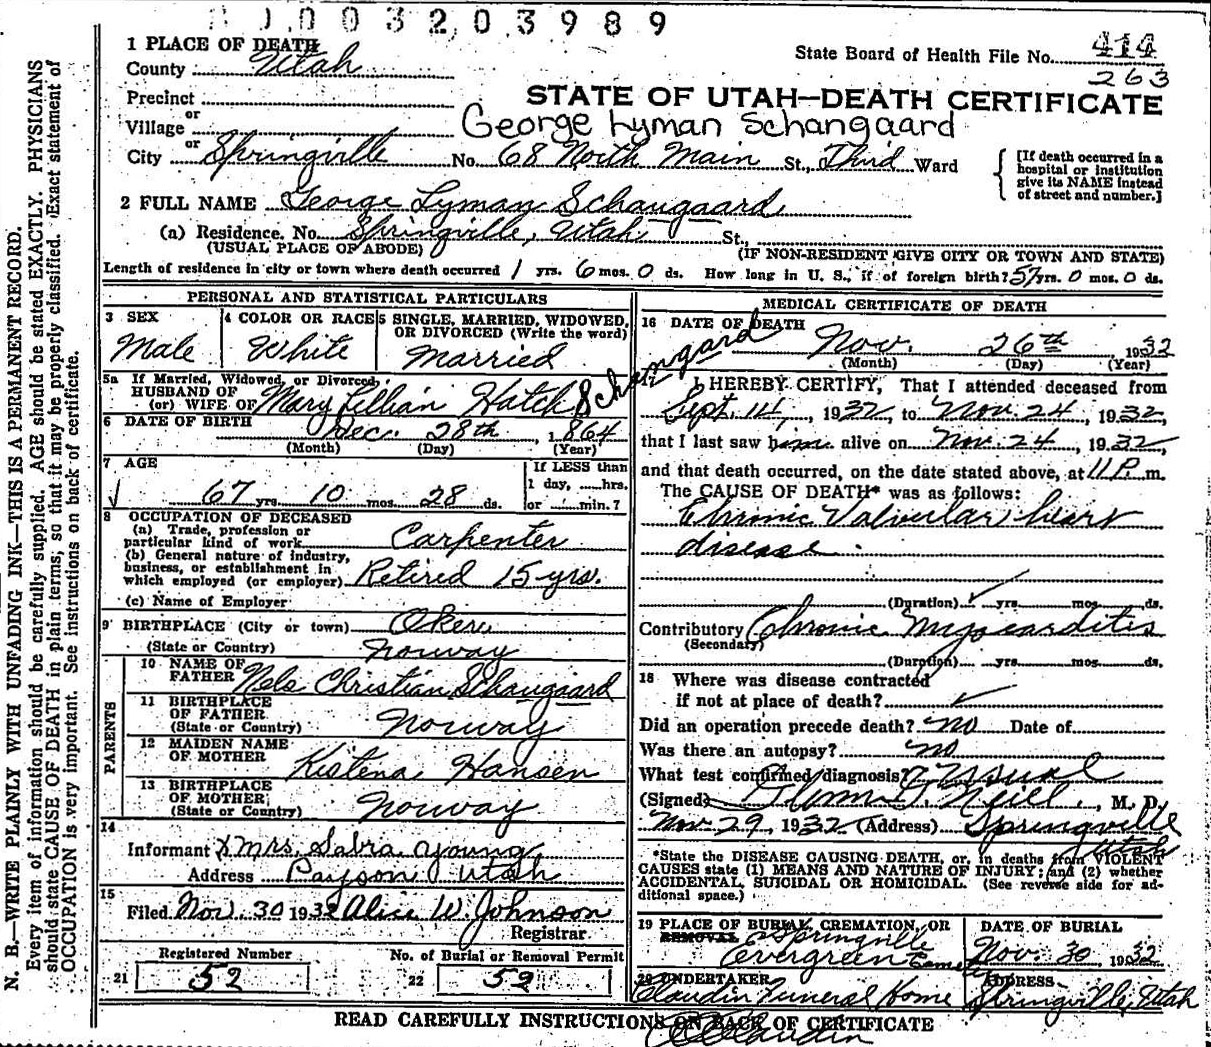 003203989
1 PLACE OF DEATH
County Utah
State Board of Health File No. 414
263
Precinct
STATE OF UTAH—DEATH CERTIFICATE
or
Village
George Lyman Schangaard
or
City Springville No. 68 North Main St., Third Ward
[If death occurred in a
hospital or institution
give its NAME instead
of street and number.]
2 FULL NAME George Lyman Schaugaard
(a) Residence. No. Springville, Utah St.,
(USUAL PLACE OF ABODE) (IF NON-RESIDENT GIVE CITY OR TOWN AND STATE)
Length of residence in city or town where death occurred 1 yrs. 6 mos. 0 ds. How long in U. S., if of foreign birth? 57 yrs. 0 mos. 0 ds.
PERSONAL AND STATISTICAL PARTICULARS
3 SEX
Male
4 COLOR OR RACE
White
5 SINGLE, MARRIED, WIDOWED,
OR DIVORCED (Write the word)
Married
5a If Married, Widowed, or Divorced,
HUSBAND OF
(or) WIFE OF Mary Lillian Hatch Schangard
6 DATE OF BIRTH
Dec. 28th, 1864
(Month) (Day) (Year)
7 AGE
67 yrs. 10 mos. 28 ds.
If LESS than
1 day, hrs.
or min.?
8 OCCUPATION OF DECEASED
(a) Trade, profession or
particular kind of work Carpenter
(b) General nature of industry,
business, or establishment in
which employed (or employer) Retired 15 yrs.
(c) Name of Employer
9 BIRTHPLACE (City or town) Okere
(State or Country) Norway
PARENTS
10 NAME OF
FATHER Nels Christian Schaugaard
11 BIRTHPLACE
OF FATHER
(State or Country) Norway
12 MAIDEN NAME
OF MOTHER Kistena Hansen
13 BIRTHPLACE
OF MOTHER
(State or Country) Norway
14
Informant X Mrs. Sabra Young
Address Payson Utah
15
Filed Nov. 30 1932 Alice W. Johnson
Registrar
Registered Number
21 52
No. of Burial or Removal Permit
22 52
MEDICAL CERTIFICATE OF DEATH
16 DATE OF DEATH
Nov. 26th 1932
(Month) (Day) (Year)
17 I HEREBY CERTIFY, That I attended deceased from
Sept. 14, 1932 to Nov. 24, 1932,
that I last saw him alive on Nov. 24, 1932,
and that death occurred, on the date stated above, at 11 P. m.
The CAUSE OF DEATH* was as follows:
Chronic Valvular heart
disease.
(Duration) yrs. mos. ds.
Contributory Chronic Myocarditis
(Secondary)
(Duration) yrs. mos. ds.
18 Where was disease contracted
if not at place of death?
Did an operation precede death? no Date of
Was there an autopsy? no
What test confirmed diagnosis? Usual
(Signed) Neill, M. D.
Nov. 29, 1932 (Address) Springville
Utah
*State the DISEASE CAUSING DEATH, or, in deaths from VIOLENT
CAUSES state (1) MEANS AND NATURE OF INJURY; and (2) whether
ACCIDENTAL, SUICIDAL OR HOMICIDAL. (See reverse side for ad-
ditional space.)
19 PLACE OF BURIAL, CREMATION, OR
REMOVAL Springville
Evergreen Cemetery
DATE OF BURIAL
Nov. 30, 1932
20 UNDERTAKER
Claudin Funeral Home
ADDRESS
Springville, Utah
READ CAREFULLY INSTRUCTIONS ON BACK OF CERTIFICATE
Claudin
N. B.—WRITE PLAINLY WITH UNFADING INK—THIS IS A PERMANENT RECORD.
Every item of information should be carefully supplied. AGE should be stated EXACTLY. PHYSICIANS
should state CAUSE OF DEATH in plain terms, so that it may be properly classified. Exact statement of
OCCUPATION is very important. See instructions on back of certificate.